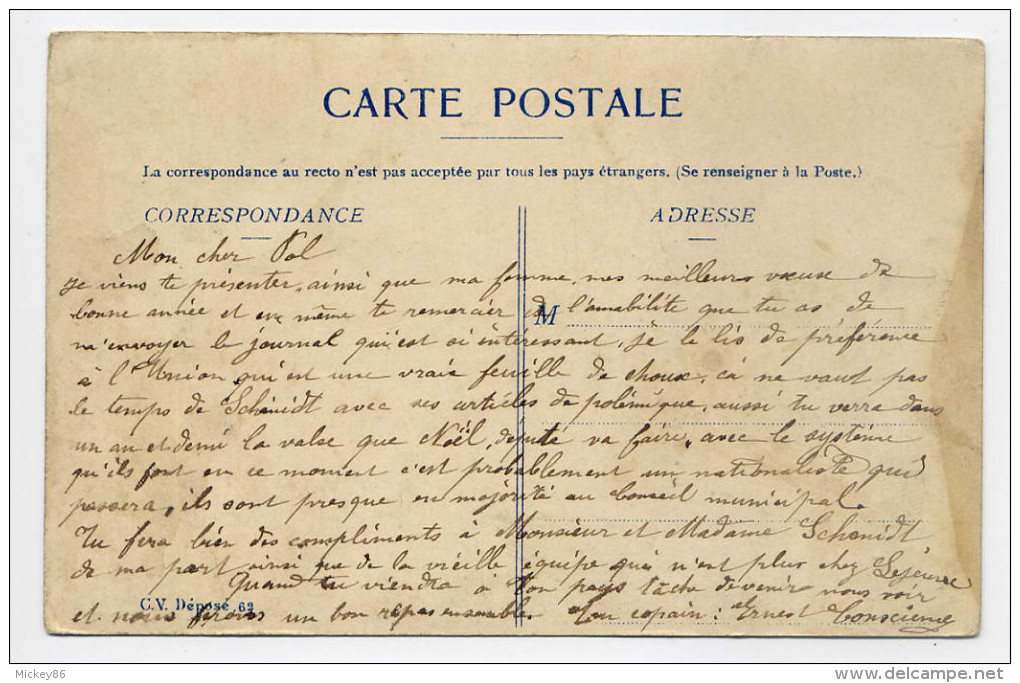 CARTE POSTALE
La correspondance au recto n'est pas acceptée par tous les pays étrangers. (Se renseigner à la Poste.)
CORRESPONDANCE
ADRESSE
Mon cher Pol
Je viens te présenter, ainsi que ma femme, mes meilleurs vœux de
bonne année et en même te remercier de l'amabilité que tu as de
M
m'envoyer le journal qui est si intéressant, je le lis de préférence
à l'Union qui est une vraie feuille de choux, ça ne vaut pas
le temps de Schmidt avec ses articles de polémique, aussi tu verra dans
un an et demi la valse que Noël, député va faire, avec le système
qu'ils font en ce moment c'est probablement un nationaliste qui
passera, ils sont presque en majorité au Conseil municipal.
Tu fera bien des compliments à Monsieur et Madame Schmidt
de ma part ainsi que de la vieille équipe qui n'est plus chez Lejeune
Quand tu viendra à ton pays tâche de venir nous voir
C.V. Déposé 62
et nous ferons un bon repas ensemble. Ton copain : Ernest
Mickey86
delcampe.net